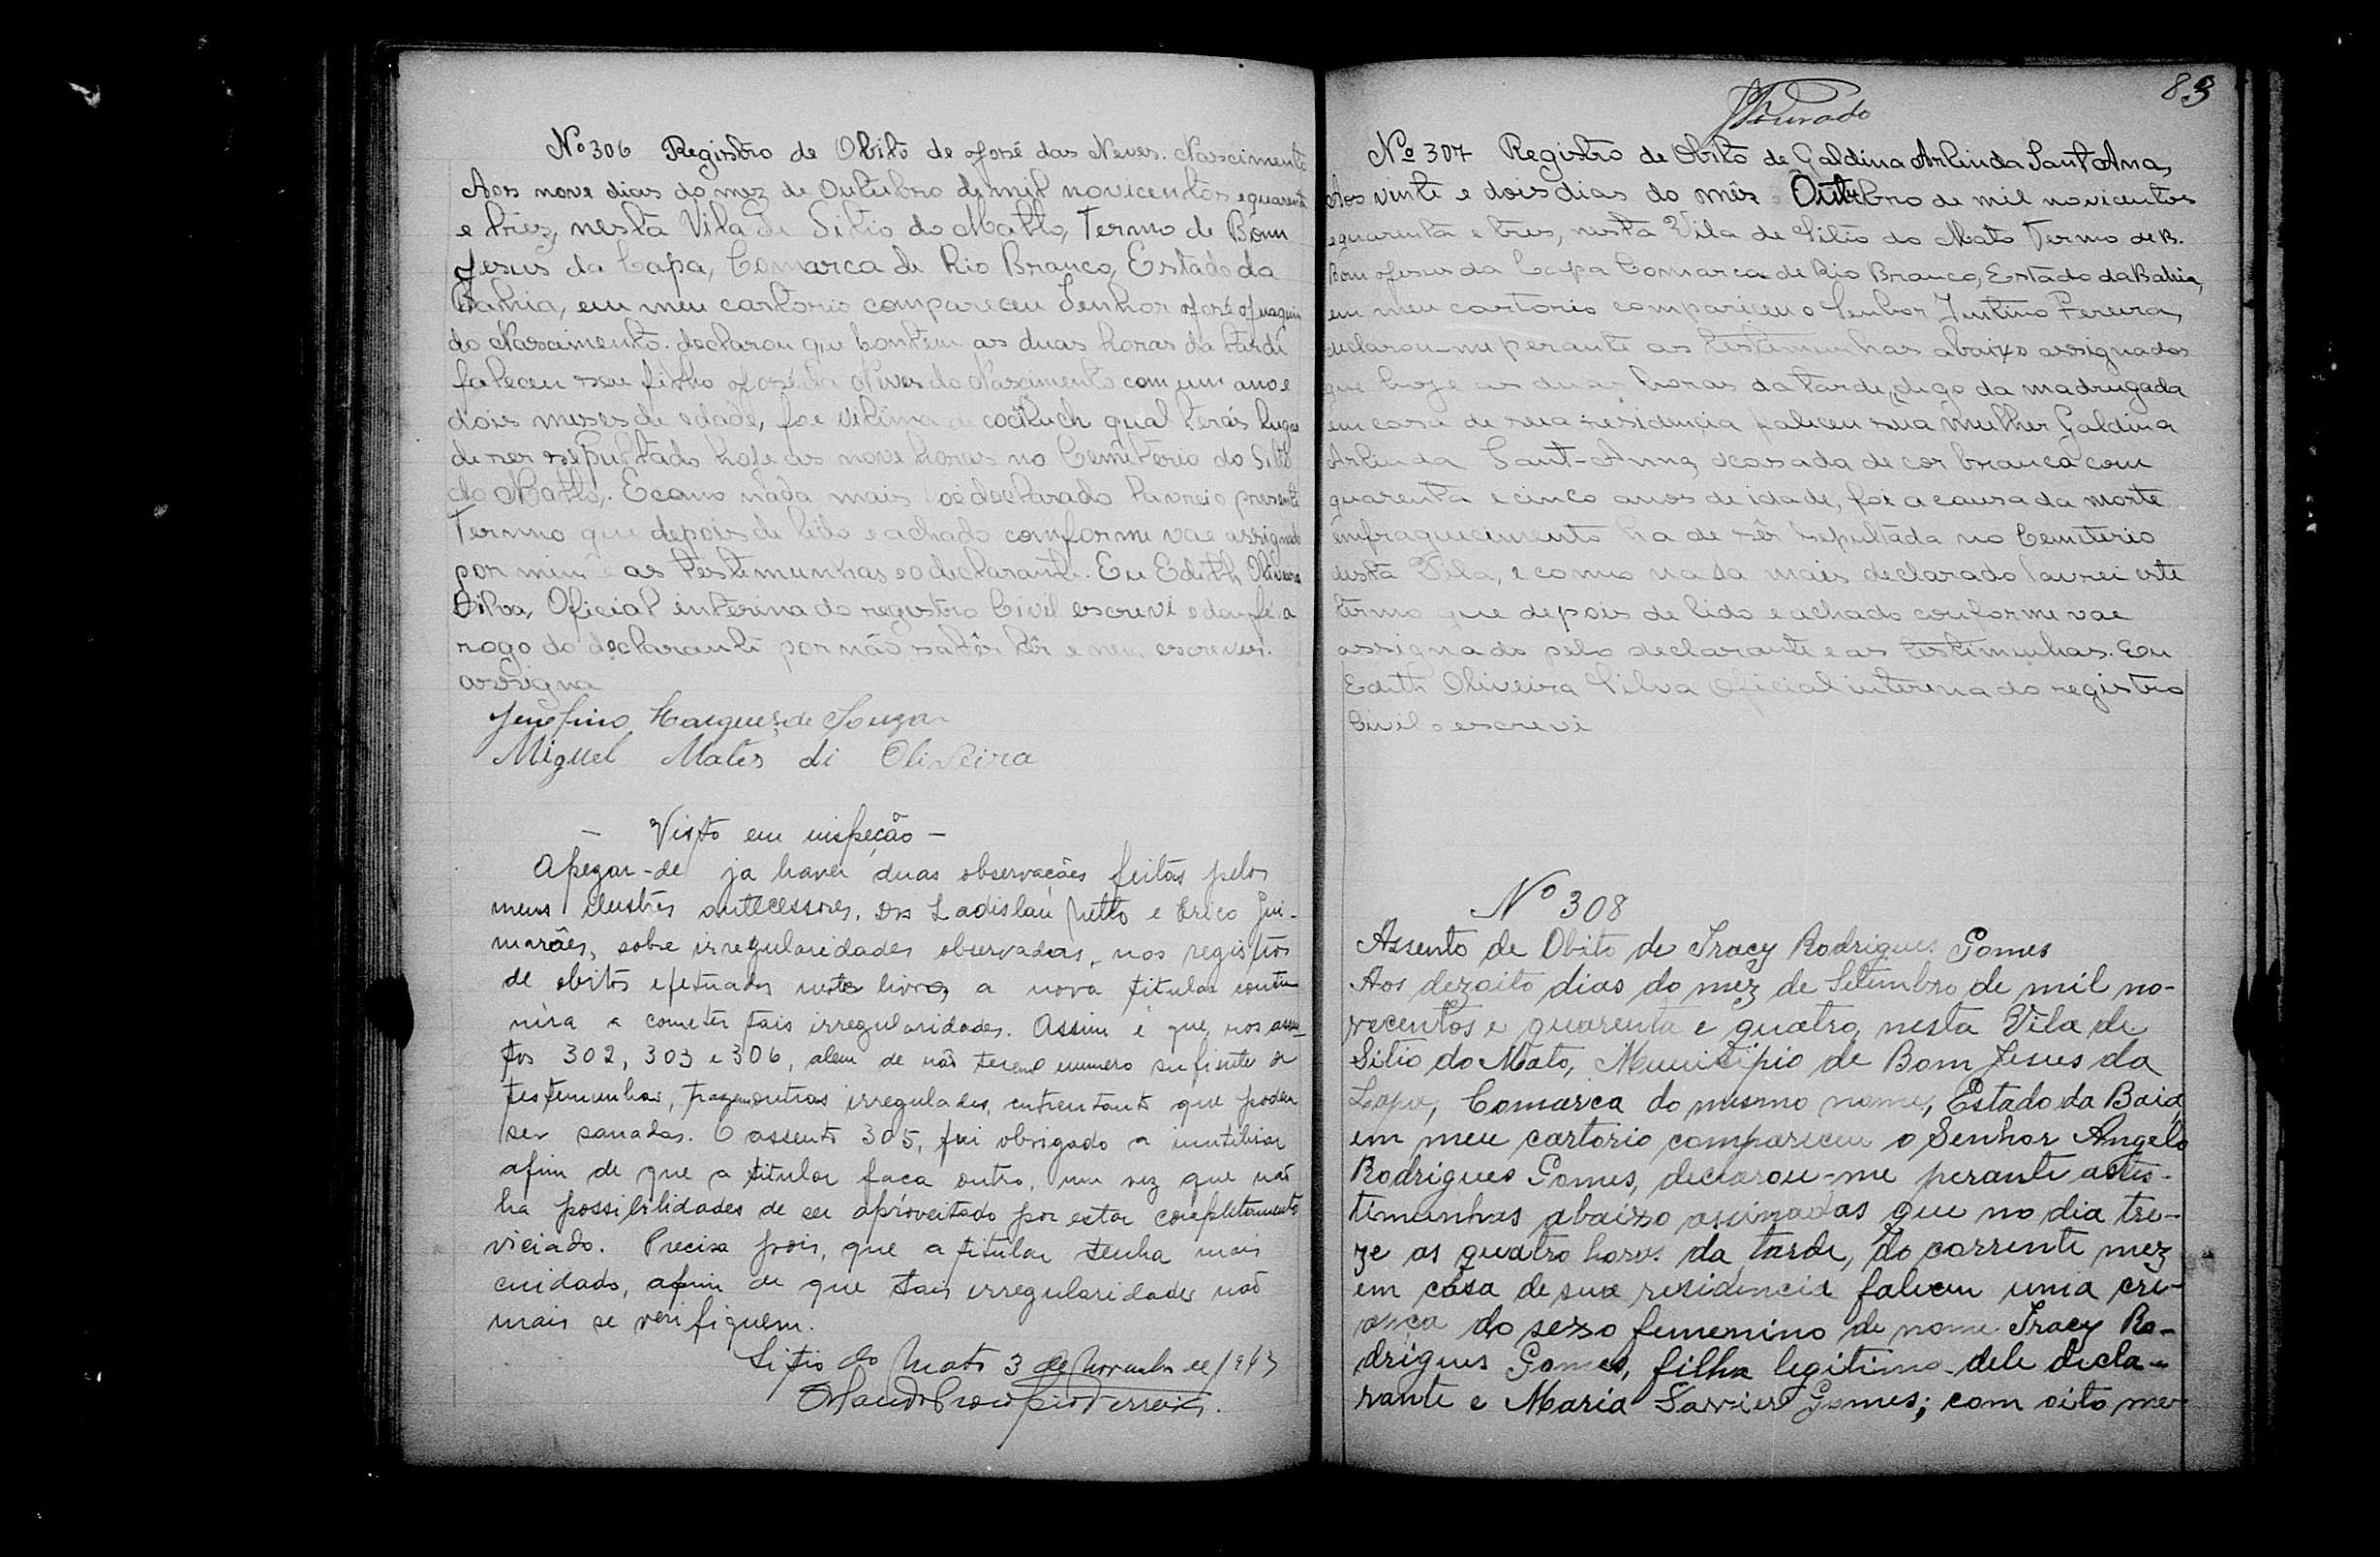 Nº 306 Registro de Obito de José das Neves. Nascimento
Aos nove dias do mez de Outubro de mil novicentos e quarenta
e trez, nesta Vila de Sitio do Matto, Termo de Bom
Jesus da Lapa, Comarca de Rio Branco, Estado da
Bahia, em meu cartorio compareceu Senhor José Juaquim
do Nascimento. declarou que hontem as duas horas da tarde
faleceu seu filho José da Neves do Nascimento com um ano e
dois meses de edade, foe vitima de qual terás lugar
de ser sepultado hoje as nove horas no Cemiterio do Sitio
do Matto. E como nada mais foe declarado lavrei o presente
Termo que depois de lido e achado comforme vae assignado
por mim e as testemunhas e o declarante. Eu Edith Oliveira
Silva, Oficial interina do registro Civil escrevi e dou fé a
rogo do declarante por não saber lêr e nem escrever.
assigna
Marques de Souza
Miguel Mates di Oliveira
— Visto em inspeção —
Apezar-de ja haver duas observações feitas pelos
meus ilustres antecessores, Drs Ladislau Netto e Erico Gui-
marães, sobre irregularidades observadas, nos registros
de obitos efetuados neste livro, a nova titular conti-
núa a cometer tais irregularidades. Assim é que nos assen-
tos 302, 303 e 306, alem de não terem numero sufiente de
testemunhas, trazem outras irregulades, entretanto que podem
ser sanadas. O assento 305, fui obrigado a inutilisar
afim de que a titular faca outro, uma vez que não
ha possibilidades de ser aproveitado por estar completamente
viciado. Precisa pois, que a titular tenha mais
cuidado, afim de que tais irregularidades não
mais se verifiquem.
Sitio do Mato 3 de Novembro de 1943
83
Dourado
Nº 307 Registro de Obito de Galdina Arlinda Sant Ana,
Aos vinte e dois dias do mês Outubro de mil novicentos
e quarenta e tres, nesta Vila de Sitio do Mato Termo de B.
Bom Jesus da Lapa Comarca de Rio Branco, Estado da Bahia,
em meu cartorio compariceu o Senhor Pereira,
declarou-me perante as testemunhas abaixo assignados
que hoje as duas horas da tarde, digo da madrugada
em casa de sua residencia faliceu sua mulher Galdina
Arlinda Sant-Anna, casada de cor branca com
quarenta e cinco anos de idade, foi a causa da morte
emfraquecimento ha de sêr sepultada no Cemiterio
desta Vila, e como nada mais declarado lavrei este
termo que depois de lido e achado conforme vae
assignado pelo declarante e as testemunhas. Eu
Edith Oliveira Silva Oficial interina do registro
Civil o escrevi
Nº 308
Assento de Obito de Iracy Rodrigues Gomes
Aos dezoito dias do mez de Setembro de mil no-
vecentos e quarenta e quatro, nesta Vila de
Sitio do Mato, Municipio de Bom Jesus da
Lapa, Comarca do mesmo nome, Estado da Baia,
em meu cartorio compareceu o Senhor Angelo
Rodrigues Gomes, declarou-me perante as tes-
temunhas abaixo assinadas que no dia tre-
ze as quatro horas da tarde, do corrente mez
em casa de sua residencia faleceu uma cri-
ança do sexo femenino de nome Iracy Ro-
drigues Gomes, filha legitima dele decla-
rante e Maria Gomes; com oito me-